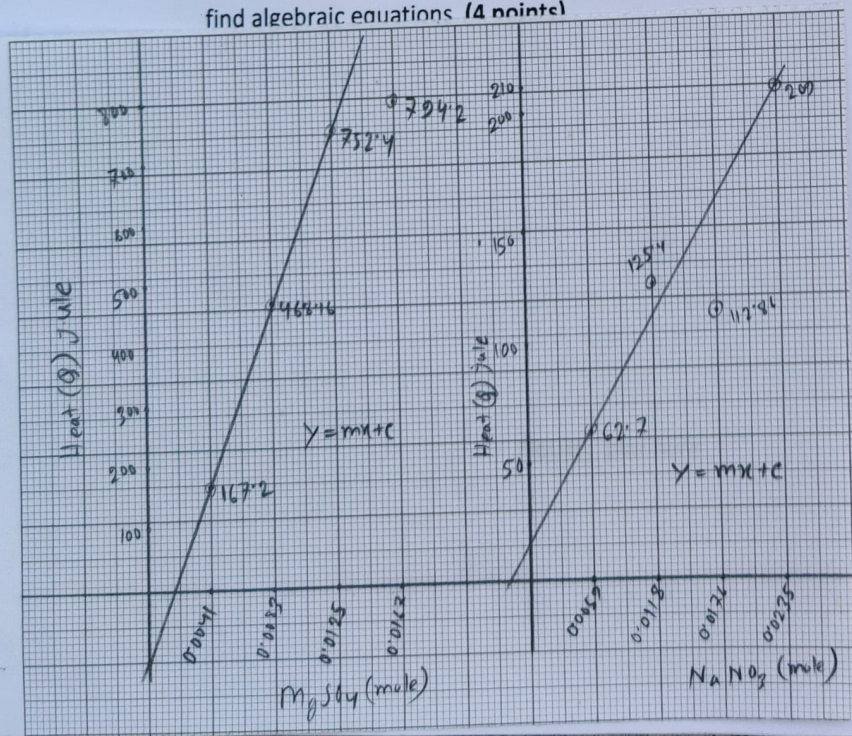 find algebraic equations (4 points)
Heat (Q) Jule
800
700
600
500
400
300
200
100
794.2
752.4
468.16
167.2
y=mx+c
0.0041
0.0083
0.0125
0.0167
MgSO4 (mole)
Heat (Q) Jule
210
200
150
100
50
209
125.4
112.86
62.7
y=mx+c
0.0059
0.0118
0.0176
0.0235
NaNO3 (mole)